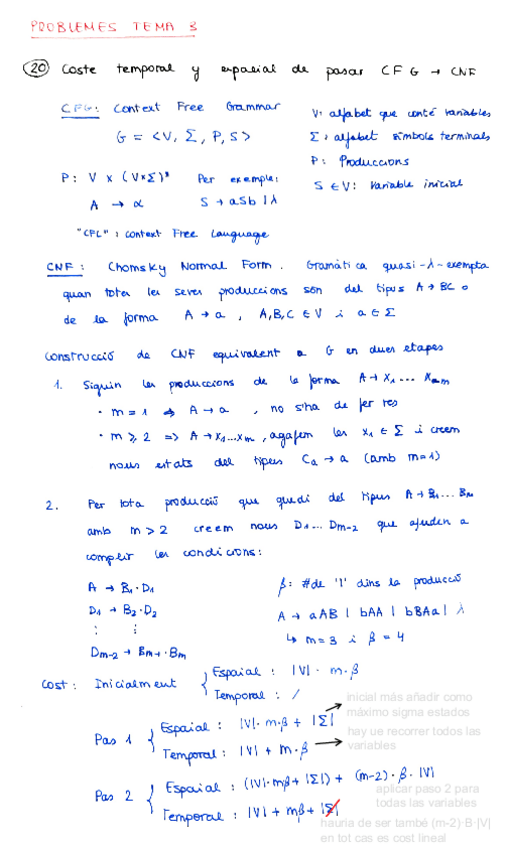 PROBLEMES TEMA 3
20 Coste temporal y espacial de pasar CFG → CNF
CFG: Context Free Grammar
G = <V, Σ, P, S>
V: alfabet que conté variables
Σ: alfabet símbols terminals
P: Produccions
S ∈ V: Variable inicial
P: V x (V×Σ)* Per exemple:
A → α S → aSb | λ
"CFL": Context Free Language
CNF: Chomsky Normal Form. Gramàtica quasi-λ-exempta
quan totes les seves produccions són del tipus A → BC o
de la forma A → a, A,B,C ∈ V i a ∈ Σ
Construcció de CNF equivalent a G en dues etapes
1. Siguin les produccions de la forma A → X1 ... Xm
• m = 1 ⇒ A → a, no s'ha de fer res
• m ≥ 2 => A → X1...Xm, agafem les X1 ∈ Σ i creem
nous estats del tipus Ca → a (amb m=1)
2. Per tota producció que quedi del tipus A → B1 ... Bm
amb m > 2 creem nous D1 ... Dm-2 que ajuden a
complir les condicions:
A → B1 · D1
D1 → B2 · D2
⋮ ⋮
Dm-2 → Bm-1 · Bm
β: #de '|' dins la producció
A → aAB | bAA | bBAa | λ
↳ m=3 i β = 4
Cost: Inicialment { Espaial: |V| · m · β
Temporal: /
Pas 1 { Espaial: |V| · m·β + |Σ|
Temporal: |V| + m·β
inicial más añadir como
máximo sigma estados
hay ue recorrer todos las
variables
Pas 2 { Espaial: (|V|·mβ + |Σ|) + (m-2)·β·|V|
Temporal: |V| + mβ + |Σ|
aplicar paso 2 para
todas las variables
hauria de ser també (m-2)·B·|V|
en tot cas es cost lineal